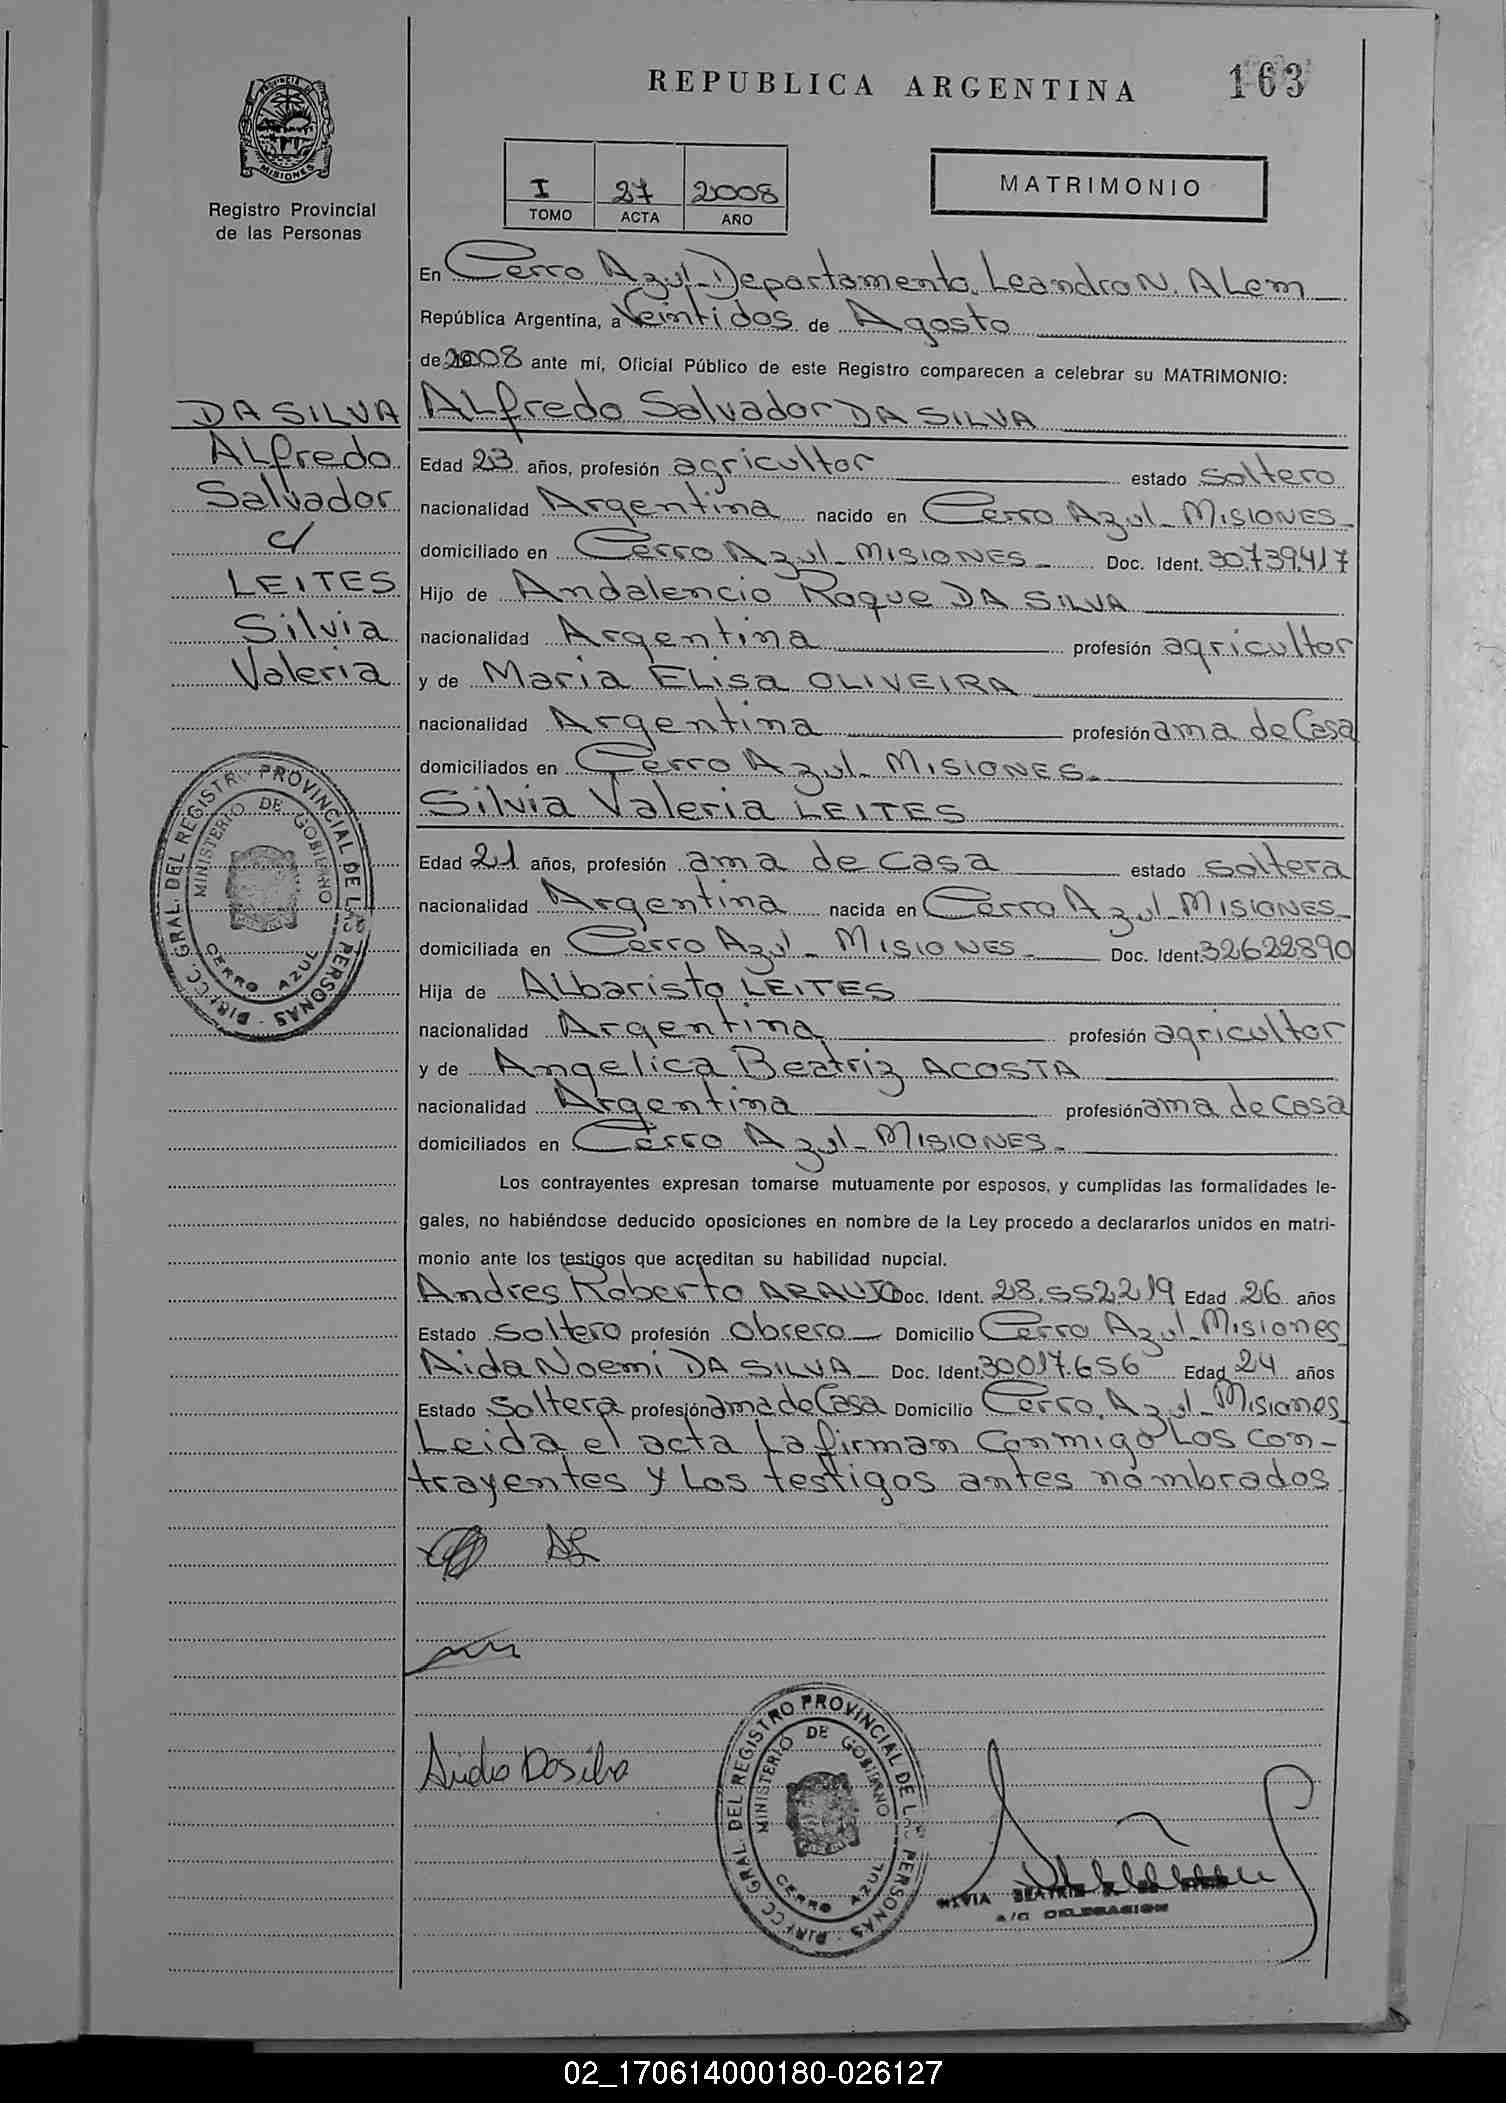 REPUBLICA ARGENTINA
163
PROVINCIA DE
MISIONES
Registro Provincial
de las Personas
I 27 2008
TOMO ACTA AÑO
MATRIMONIO
En Cerro Azul-Departamento Leandro N. ALem
República Argentina, a Veintidos de Agosto
de 2008 ante mí, Oficial Público de este Registro comparecen a celebrar su MATRIMONIO:
DA SILVA
ALfredo
Salvador
c/
LEITES
Silvia
Valeria
ALfredo Salvador DA SILVA
Edad 23 años, profesión agricultor estado soltero
nacionalidad Argentina nacido en Cerro Azul-MISIONES-
domiciliado en Cerro Azul-MISIONES- Doc. Ident. 30.739.417
Hijo de Andalencio Roque DA SILVA
nacionalidad Argentina profesión agricultor
y de Maria ELisa OLIVEIRA
nacionalidad Argentina profesión ama de Casa
domiciliados en Cerro Azul-MISIONES-
Silvia Valeria LEITES
Edad 21 años, profesión ama de casa estado soltera
nacionalidad Argentina nacida en Cerro Azul-MISIONES-
domiciliada en Cerro Azul-MISIONES- Doc. Ident. 32622890
Hija de ALbaristo LEITES
nacionalidad Argentina profesión agricultor
y de Angelica Beatriz ACOSTA
nacionalidad Argentina profesión ama de casa
domiciliados en Cerro Azul-MISIONES-
Los contrayentes expresan tomarse mutuamente por esposos, y cumplidas las formalidades le-
gales, no habiéndose deducido oposiciones en nombre de la Ley procedo a declararlos unidos en matri-
monio ante los testigos que acreditan su habilidad nupcial.
Andres Roberto ARAUJO Doc. Ident. 28.552.219 Edad 26 años
Estado soltero profesión obrero Domicilio Cerro Azul-Misiones
Aida Noemi DA SILVA Doc. Ident 30017.656 Edad 24 años
Estado Soltera profesión ama de Casa Domicilio Cerro Azul-Misiones
Leida el acta La firman Conmigo Los con-
trayentes y Los testigos antes nombrados
DIRECC. GRAL. DEL REGISTRO PROVINCIAL DE LAS PERSONAS
MINISTERIO DE GOBIERNO
CERRO AZUL
Aida Dasilva
DIRECC. GRAL. DEL REGISTRO PROVINCIAL DE LAS PERSONAS
MINISTERIO DE GOBIERNO
CERRO AZUL
SILVIA BEATRIZ
A/C DELEGACION
02_170614000180-026127